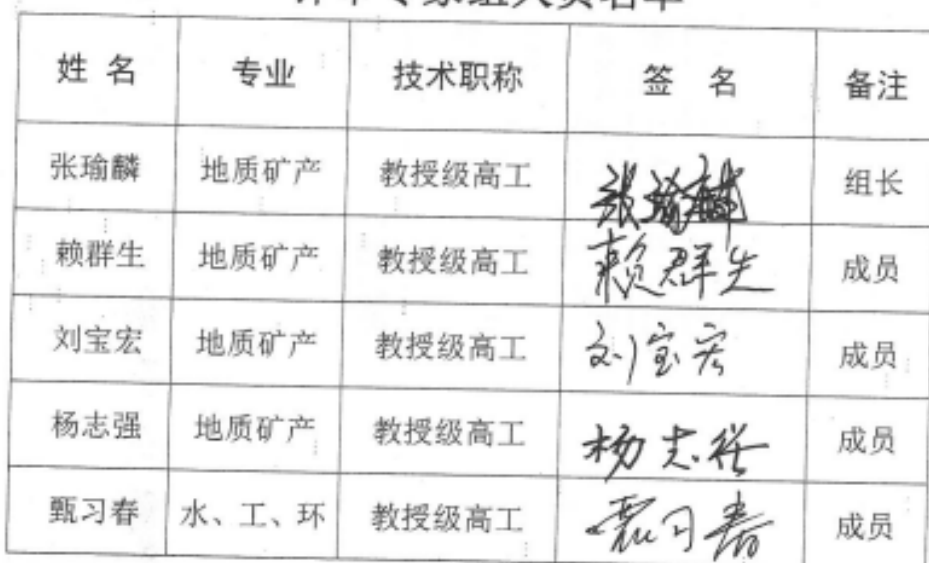 姓 名 专业 技术职称 签 名 备注
张瑜麟 地质矿产 教授级高工 张瑜麟 组长
赖群生 地质矿产 教授级高工 赖群生 成员
刘宝宏 地质矿产 教授级高工 刘宝宏 成员
杨志强 地质矿产 教授级高工 杨志强 成员
甄习春 水、工、环 教授级高工 甄习春 成员